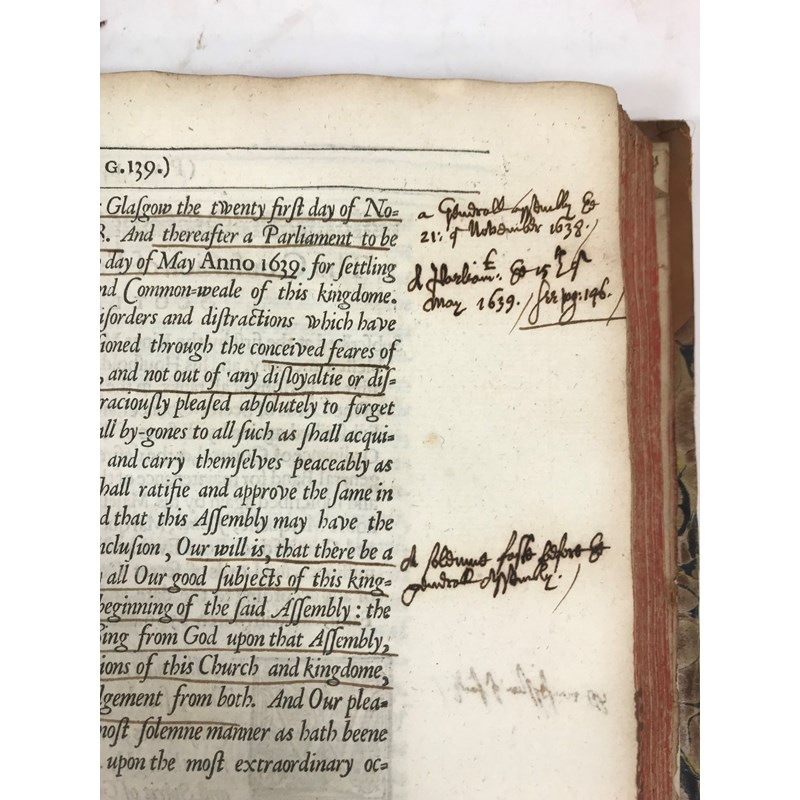 G.139.)
Glaſgow the twenty firſt day of No=
R. And thereafter a Parliament to be
day of May Anno 1639. for ſettling
nd Common=weale of this kingdome.
iſorders and diſtractions which have
ioned through the conceived feares of
, and not out of any diſloyaltie or diſ=
raciouſly pleaſed abſolutely to forget
all by-gones to all ſuch as ſhall acqui=
and carry themſelves peaceably as
hall ratifie and approve the ſame in
d that this Aſſembly may have the
ncluſion, Our will is, that there be a
all Our good ſubjects of this king=
beginning of the ſaid Aſſembly: the
ſing from God upon that Aſſembly,
ions of this Church and kingdome,
dgement from both. And Our plea=
moſt ſolemne manner as hath beene
upon the moſt extraordinary oc=
a Generall aſſembly
21: of November 1638.
A Parliam:t 15th
May 1639. See pg: 196.
A Solemne faſt before
generall Aſſembly.